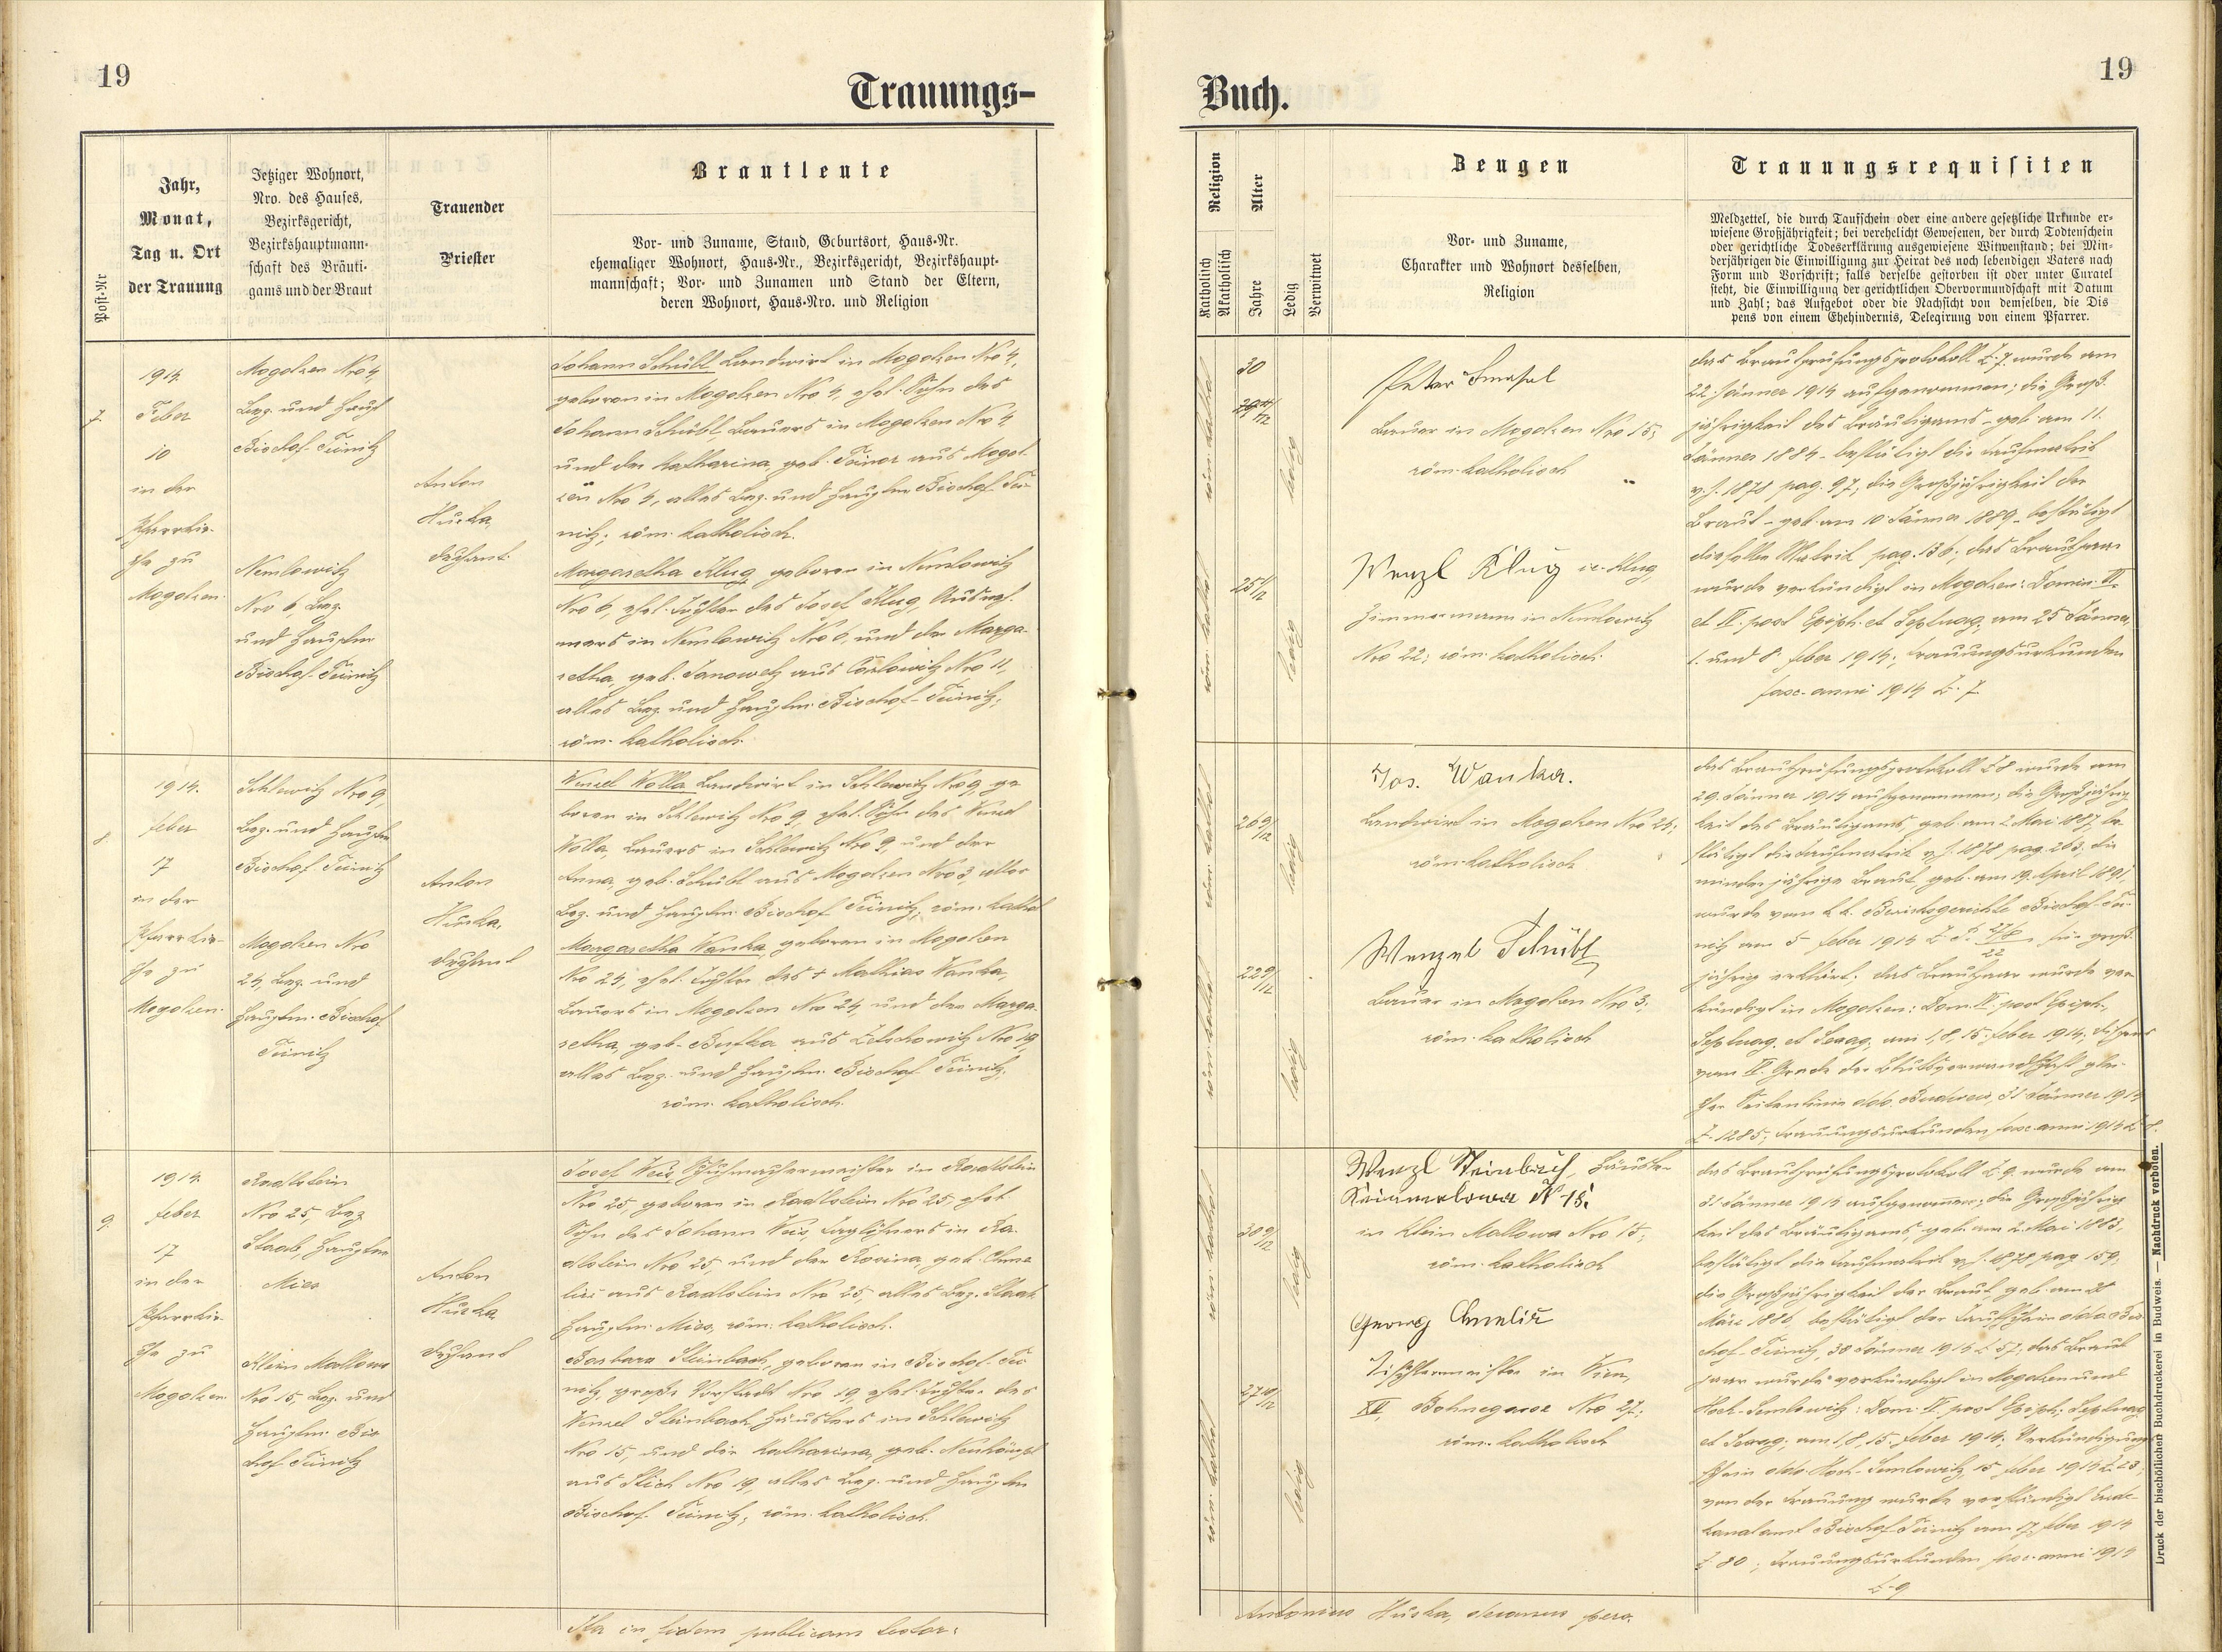 19
Trauungs-
Post-Nr
Jahr,
Monat,
Tag u. Ort
der Trauung
Jetziger Wohnort,
Nro. des Hauses,
Bezirksgericht,
Bezirkshauptmann-
schaft des Bräuti-
gams und der Braut
Trauender
Priester
Brautleute
Vor- und Zuname, Stand, Geburtsort, Haus-Nr.
ehemaliger Wohnort, Haus-Nr., Bezirksgericht, Bezirkshaupt-
mannschaft; Vor- und Zunamen und Stand der Eltern,
deren Wohnort, Haus-Nro. und Religion
7.
1914.
Feber
10
in der
Pfarrkir-
che zu
Mogolzen.
Mogolzen Nro 4,
Bez. und Haupt
Bischof-Teinitz
Nemlowitz
Nro 6, Bez.
und Hauptm
Bischof-Teinitz
Anton
Huska,
Dechant.
Johann Schübl Landwirt in Mogolzen Nro 4,
geboren in Mogolzen Nro 4, ehel. Sohn des
Johann Schübl, Bauers in Mogolzen Nro 4
und der Katharina, geb. aus Mogol-
zen Nro 4, alles Bez. und Hauptm Bischof Tei-
nitz; röm. katholisch.
Margaretha Klug geboren in Nemlowitz
Nro 6, ehel. Tochter des Josef Klug, Ausneh-
mers in Nemlowitz Nro 6, und der Marga-
retha, geb. Janowetz aus Nro 11,
alles Bez. und Hauptm. Bischof-Teinitz;
röm. katholisch.
8.
1914.
Feber
17
in der
Pfarrkir-
che zu
Mogolzen.
Schlewitz Nro 9,
Bez. und Hauptm
Bischof Teinitz
Mogolzen Nro
24, Bez. und
Hauptm. Bischof
Teinitz
Anton
Huska,
Dechant
Wenzel Wolla Landwirt in Schlewitz Nro 9, ge
boren in Schlewitz Nro 9, ehel. Sohn des Wenzel
Wolla, Bauers in Schlewitz Nro 9, und der
Anna, geb. Schübl aus Mogolzen Nro 3, alles
Bez. und Hauptm. Bischof Teinitz; röm. kathol
Margaretha Wanka, geboren in Mogolzen
Nro 24, ehel. Tochter des + Mathias Wanka,
Bauers in Mogolzen Nro 24, und der Marga
retha, geb. aus Nro 19,
alles Bez. und Hauptm. Bischof Teinitz;
röm. katholisch.
9.
1914.
Feber
17
in der
Pfarrkir-
che zu
Mogolzen
Radlstein
Nro 25, Bez
Staab, Hauptm
Mies
Klein Mallowa
Nro 15, Bez. und
Hauptm. Bis
chof-Teinitz
Anton
Huska,
Dechant
Josef Weis, Schuhmachermeister in Radlstein
Nro 25, geboren in Radlstein Nro 25, ehel.
Sohn des Johann Weis, Taglöhners in Ra-
dlstein Nro 25, und der Rosina, geb. Chme
lir aus Radlstein Nro 25, alles Bez. Staab
Hauptm. Mies; röm. katholisch.
Barbara Steinbach, geboren in Bischof-Tei
nitz, große Vorstadt Nro 19, ehel. Tochter des
Wenzel Steinbach Häuslers in Schlewitz
Nro 15, und der Katharina, geb.
aus Stich Nro 19, alles Bez. und Hauptm
Bischof Teinitz; röm. katholisch.
Ita in fidem publicam testor:
19
Buch.
Religion
Katholisch
Akatholisch
Alter
Jahre
Ledig
Verwitwet
Zeugen
Vor- und Zuname,
Charakter und Wohnort desselben,
Religion
Trauungsrequisiten
Meldzettel, die durch Taufschein oder eine andere gesetzliche Urkunde er-
wiesene Großjährigkeit; bei verehelicht Gewesenen, der durch Todtenschein
oder gerichtliche Todeserklärung ausgewiesene Witwenstand; bei Min-
derjährigen die Einwilligung zur Heirat des noch lebendigen Vaters nach
Form und Vorschrift; falls derselbe gestorben ist oder unter Curatel
steht, die Einwilligung der gerichtlichen Obervormundschaft mit Datum
und Zahl; das Aufgebot oder die Nachsicht von demselben, die Dis
pens von einem Ehehindernis, Delegirung von einem Pfarrer.
röm. kathol
30
ledig
röm. kathol
25 1/12
ledig
Peter
Bauer in Mogolzen Nro 15;
röm. katholisch
Wenzl Klug ie. Klug,
Zimmermann in Nemlowitz
Nro 22; röm. katholisch.
das Brautprüfungsprotokoll Z. 7 wurde am
22. Jänner 1914 aufgenommen; die Groß-
jährigkeit des Bräutigams - geb. am 11.
Jänner 1884 - bestätigt die Taufmatrik
v. J. 1878 pag. 97; die Großjährigkeit der
Braut - geb. am 10. Jänner 1889 - bestätigt
dieselbe Matrik pag. 136; das Brautpaar
wurde verkündigt in Mogolzen: Domin. III.
et IV. post Epiph. et Septuag, am 25 Jänner,
1. und 8. Feber 1914; Trauungsurkunden
fasc. anni 1914 Z. 7.
röm. kathol
26 9/12
ledig
röm. kathol
22 9/12
ledig
Jos. Wanka.
Landwirt in Mogolzen Nro 24;
röm. katholisch
Wenzel Schübl
Bauer in Mogolzen Nro 3;
röm. katholisch
das Brautprüfungsprotokoll Z 8 wurde am
29. Jänner 1914 aufgenommen; die Großjährig
keit des Bräutigams, geb. am 2. Mai 1887, be
stätigt die Taufmatrik v. J. 1878 pag. 263; die
minderjährige Braut, geb. am 19. April 1891,
wurde vom k. k. Bezirksgerichte Bischof-Tei
nitz am 5. Feber 1914 für groß-
jährig erklärt; das Brautpaar wurde ver
kündigt in Mogolzen: Dom. IV. post Epiph.,
Septuag. et Sexag; am 1, 8, 15. Feber 1914; Dispens
vom Grade der Blutsverwandtschaft glei-
cher Seitenlinie ddo. Budweis, 31 Jänner 1914
Z. 1285; Trauungsurkunden fasc. anni 1914 Z 8.
röm. kathol
30 9/12
ledig
röm. kathol
27 10/12
ledig
Wenzl Steinbach, Häusler
N 15.
in Klein Mallowa Nro 15;
röm. katholisch
Georg Chmelir
Tischlermeister in Wien,
XV, Nro 27;
röm. katholisch
das Brautprüfungsprotokoll Z. 9. wurde am
31 Jänner 1914 aufgenommen; die Großjährig
keit des Bräutigams, geb. am 2. Mai 1883,
bestätigt die Taufmatrik v. J. 1878 pag 159;
die Großjährigkeit der Braut, geb. am
März 1886, bestätigt der Taufschein ddo Bis
chof-Teinitz, 30 Jänner 1914 Z. 57; das Braut
paar wurde verkündigt in Mogolzen und
Hoch-Semlowitz: Dom. IV. post Epiph, Septuag.
et Sexag; am 1, 8, 15. Feber 1914; Verkündigungs
schein ddo. Hoch-Semlowitz, 15 Feber 1914 Z. 23;
von der Trauung wurde verständigt
Bischof-Teinitz am 17. Feber 1914
Z. 80; Trauungsurkunden fasc. anni 1914
Z. 9
Antonius Huska, decanus
Druck der bischöflichen Buchdruckerei in Budweis. — Nachdruck verboten.